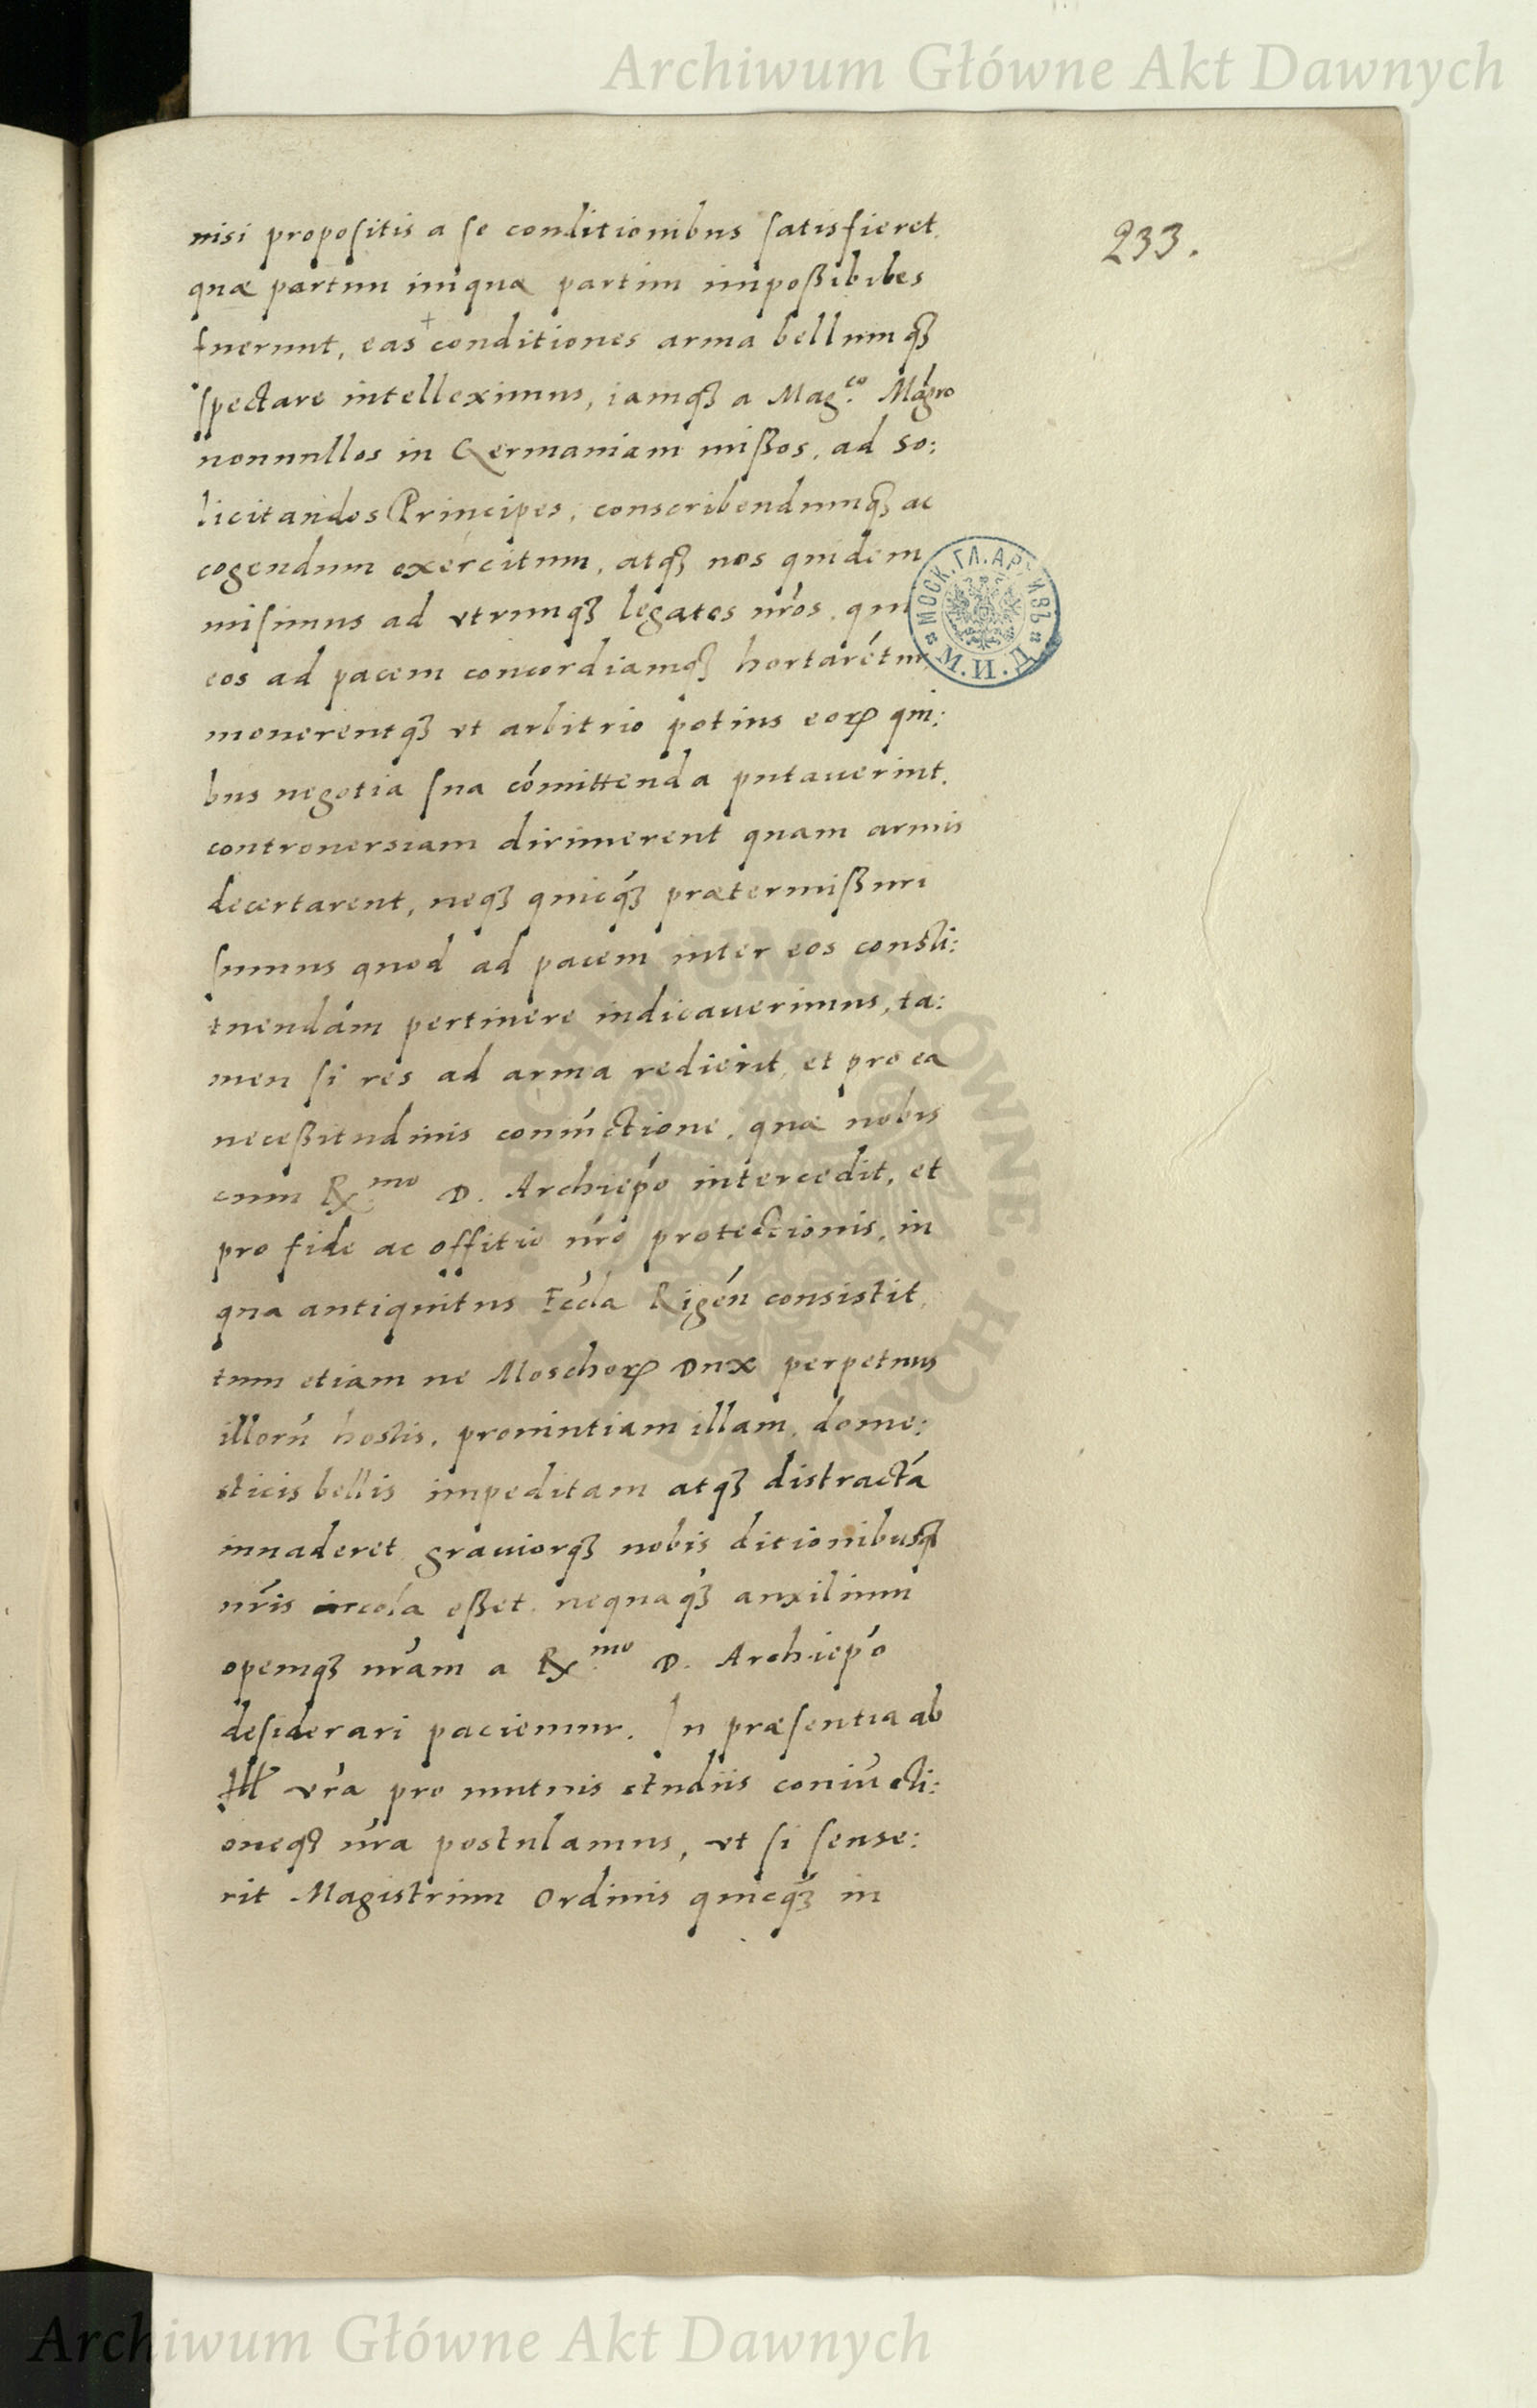 Archiwum Główne Akt Dawnych
233.
nisi propositis a se conditionibus satisfieret.
quæ partim iniquæ partim impoßibibes
fuerunt, eas + conditiones arma bellumqȝ
spectare intelleximus, iamqȝ a Mag.co Mágro
nonnullos in Germaniam mißos, ad so:
licitandos Principes, conscribendumqȝ ac
cogendum exercitum, atqȝ nos quidem
misimus ad vtrumqȝ legatos nr̃os, qui
eos ad pacem concordiamqȝ hortarét​ur
monerentqȝ vt arbitrio potius eorꝝ qui:
bus negotia sua cómittenda putauerint.
controuersiam dirimerent quam armis
decertarent, neqȝ quicqȝ́ prætermißuri
sumus quod ad pacem inter eos consti:
tuendam pertinere iudicauerimus, ta:
men si res ad arma redierit, et pro ea
neceßitudinis coniúctione, quæ nobis
cum Rx.mo D. Archiepó intercedit, et
pro fide ac offitio nr̃o protectionis, in
qua antiquitus Eccĺa Rigeń consistit,
tum etiam ne Moschorꝝ Dux perpetuus
illorú hostis, prouintiam illam, dome:
sticis bellis impeditam atqȝ distractá
inuaderet grauiorqȝ nobis ditionibusqȝ
nr̃is accola eßet, nequaqȝ́ auxilium
opemqȝ nr̃am a Rx.mo D. Archiepó
desiderari paciemur. In præsentia ab
Ill vr̃a pro mutuis studiis coniúcti:
oneqȝ nr̃a postulamus, vt si sense:
rit Magistrum Ordinis quicqȝ́ in
МОСК. ГЛ. АРХИВЪ
М. И. Д.
ARCHIWUM GŁÓWNE
AKT DAWNYCH
Archiwum Główne Akt Dawnych